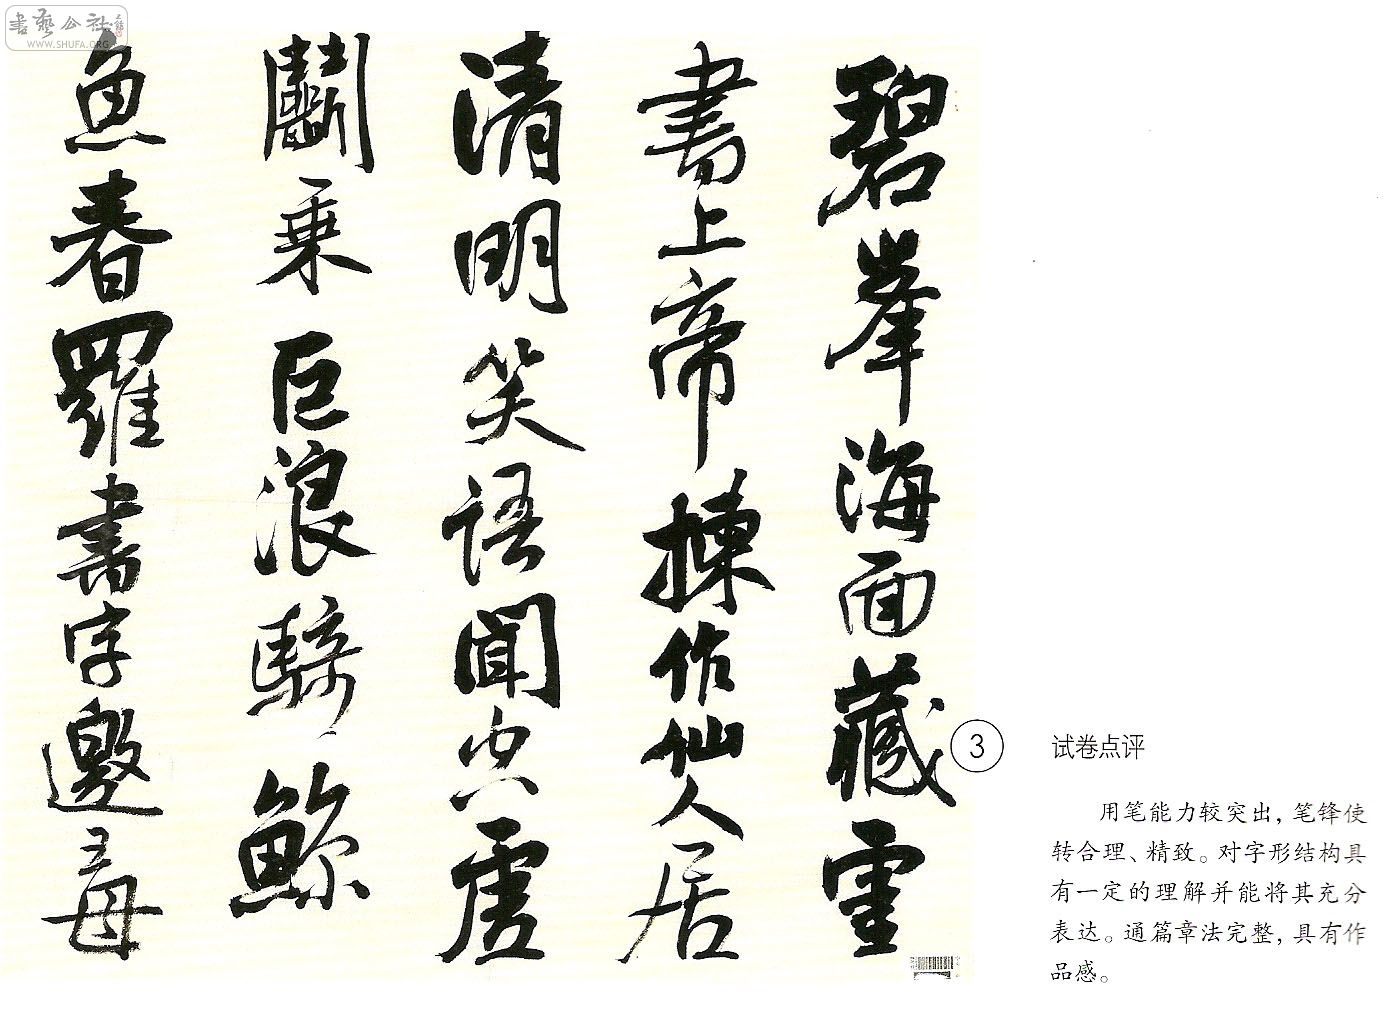 書藝公社
WWW.SHUFA.ORG
碧峯海面藏霊
書上帝揀作仙人居
清明笑語聞空虛
鬭乘巨浪騎鯨
魚春羅書字邀王母
3
试卷点评
用笔能力较突出，笔锋使
转合理、精致。对字形结构具
有一定的理解并能将其充分
表达。通篇章法完整，具有作
品感。